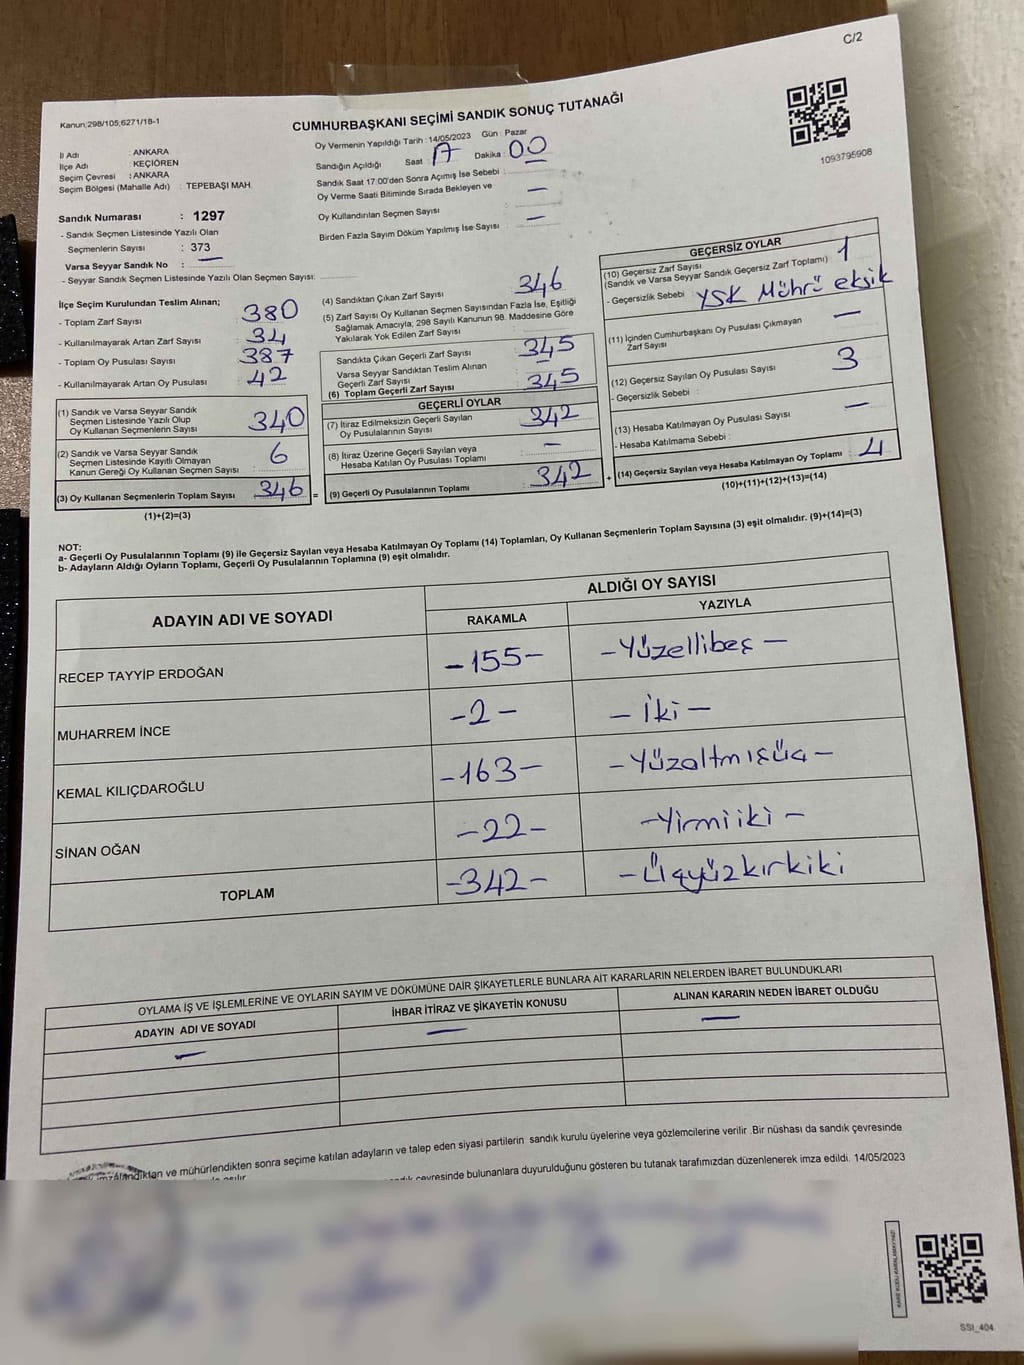 C/2
Kanun;298/105,6271/18-1
CUMHURBAŞKANI SEÇİMİ SANDIK SONUÇ TUTANAĞI
1093795908
İl Adı : ANKARA
İlçe Adı : KEÇİÖREN
Seçim Çevresi : ANKARA
Seçim Bölgesi (Mahalle Adı) : TEPEBAŞI MAH.
Oy Vermenin Yapıldığı Tarih : 14/05/2023 Gün : Pazar
Sandığın Açıldığı Saat : 17 Dakika : 00
Sandık Saat 17:00'den Sonra Açımış İse Sebebi :
Oy Verme Saati Bitiminde Sırada Bekleyen ve
Oy Kullandırılan Seçmen Sayısı : —
Birden Fazla Sayım Döküm Yapılmış İse Sayısı : —
Sandık Numarası : 1297
- Sandık Seçmen Listesinde Yazılı Olan
Seçmenlerin Sayısı : 373
Varsa Seyyar Sandık No : —
- Seyyar Sandık Seçmen Listesinde Yazılı Olan Seçmen Sayısı:
İlçe Seçim Kurulundan Teslim Alınan;
- Toplam Zarf Sayısı : 380
- Kullanılmayarak Artan Zarf Sayısı : 34
- Toplam Oy Pusulası Sayısı : 387
- Kullanılmayarak Artan Oy Pusulası : 42
(1) Sandık ve Varsa Seyyar Sandık
Seçmen Listesinde Yazılı Olup
Oy Kullanan Seçmenlerin Sayısı : 340
(2) Sandık ve Varsa Seyyar Sandık
Seçmen Listesinde Kayıtlı Olmayan
Kanun Gereği Oy Kullanan Seçmen Sayısı : 6
(3) Oy Kullanan Seçmenlerin Toplam Sayısı : 346
(1)+(2)=(3)
(4) Sandıktan Çıkan Zarf Sayısı : 346
(5) Zarf Sayısı Oy Kullanan Seçmen Sayısından Fazla İse, Eşitliği
Sağlamak Amacıyla, 298 Sayılı Kanunun 98. Maddesine Göre
Yakılarak Yok Edilen Zarf Sayısı :
Sandıkta Çıkan Geçerli Zarf Sayısı : 345
Varsa Seyyar Sandıktan Teslim Alınan
Geçerli Zarf Sayısı : —
(6) Toplam Geçerli Zarf Sayısı : 345
GEÇERLİ OYLAR
(7) İtiraz Edilmeksizin Geçerli Sayılan
Oy Pusulalarının Sayısı : 342
(8) İtiraz Üzerine Geçerli Sayılan veya
Hesaba Katılan Oy Pusulası Toplamı : —
= (9) Geçerli Oy Pusulalarının Toplamı : 342 +
GEÇERSİZ OYLAR
(10) Geçersiz Zarf Sayısı
(Sandık ve Varsa Seyyar Sandık Geçersiz Zarf Toplamı) : 1
- Geçersizlik Sebebi : YSK Mührü eksik
(11) İçinden Cumhurbaşkanı Oy Pusulası Çıkmayan
Zarf Sayısı : —
(12) Geçersiz Sayılan Oy Pusulası Sayısı : 3
- Geçersizlik Sebebi :
(13) Hesaba Katılmayan Oy Pusulası Sayısı : —
- Hesaba Katılmama Sebebi :
(14) Geçersiz Sayılan veya Hesaba Katılmayan Oy Toplamı : 4
(10)+(11)+(12)+(13)=(14)
NOT:
a- Geçerli Oy Pusulalarının Toplamı (9) ile Geçersiz Sayılan veya Hesaba Katılmayan Oy Toplamı (14) Toplamları, Oy Kullanan Seçmenlerin Toplam Sayısına (3) eşit olmalıdır. (9)+(14)=(3)
b- Adayların Aldığı Oyların Toplamı, Geçerli Oy Pusulalarının Toplamına (9) eşit olmalıdır.
ADAYIN ADI VE SOYADI ALDIĞI OY SAYISI
RAKAMLA YAZIYLA
RECEP TAYYİP ERDOĞAN -155- -Yüzellibeş-
MUHARREM İNCE -2- -İki-
KEMAL KILIÇDAROĞLU -163- -Yüzaltmışüç-
SİNAN OĞAN -22- -Yirmiiki-
TOPLAM -342- -Üçyüzkırkiki
OYLAMA İŞ VE İŞLEMLERİNE VE OYLARIN SAYIM VE DÖKÜMÜNE DAİR ŞİKAYETLERLE BUNLARA AİT KARARLARIN NELERDEN İBARET BULUNDUKLARI
ADAYIN ADI VE SOYADI İHBAR İTİRAZ VE ŞİKAYETİN KONUSU ALINAN KARARIN NEDEN İBARET OLDUĞU
— — —
imzalandıktan ve mühürlendikten sonra seçime katılan adayların ve talep eden siyasi partilerin sandık kurulu üyelerine veya gözlemcilerine verilir .Bir nüshası da sandık çevresinde
asılır. çevresinde bulunanlara duyurulduğunu gösteren bu tutanak tarafımızdan düzenlenerek imza edildi. 14/05/2023
KARE KODU KARALAMAYINIZ!
SSI_404